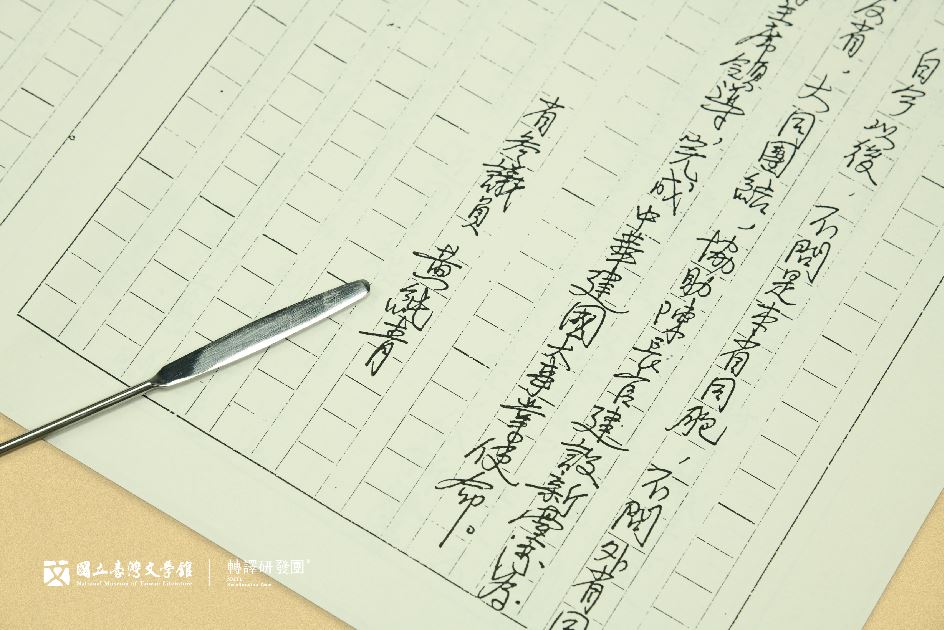 自今以後，不問是本省同胞，不問外省同
友者，大同團結，協助陳長官建設新臺灣，
主席領導，完成中華建國大事業使命。
省參議員 黃純青
國立臺灣文學館
National Museum of Taiwan Literature
轉譯研發團